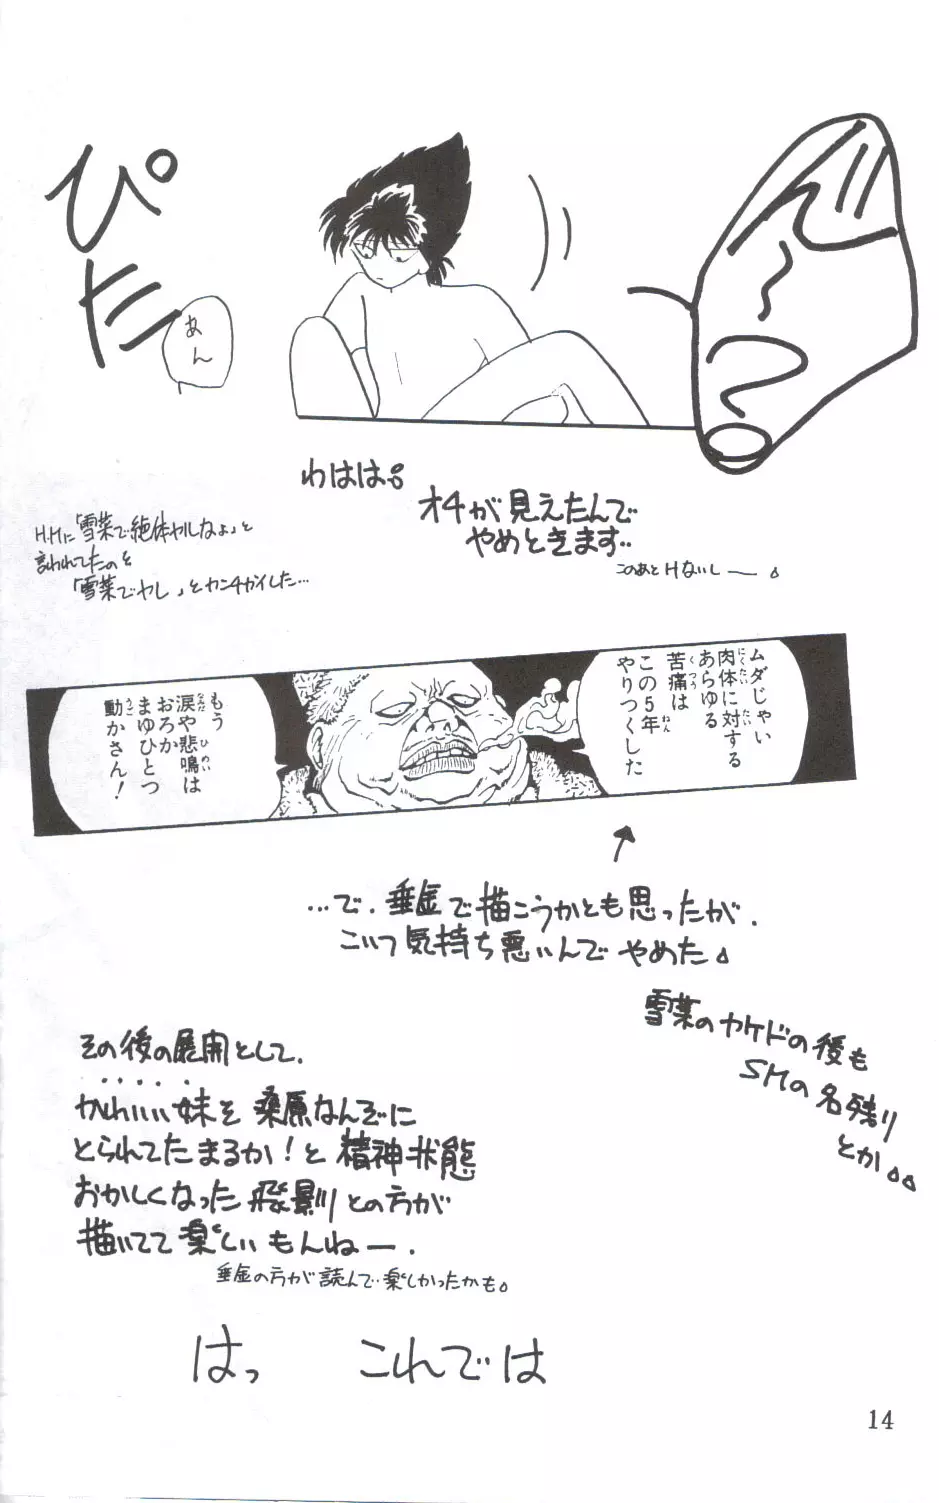 ぴた
あん
わはは。
オチが見えたんで
やめときます…
このあとHないし――。
H.Hに「雪菜で絶体ヤルなよ」と
言われてたのを
「雪菜でヤレ」とカンチガイした…
ムダじゃい
肉体に対する
あらゆる
苦痛は
この5年
やりつくした
もう
涙や悲鳴は
おろか
まゆひとつ
動かさん!
…で、垂金で描こうかとも思ったが、
こいつ気持ち悪いんでやめた。
雪菜のヤケドの後も
SMの名残り
とか。。
その後の展開として、
かわいい妹を桑原なんぞに
とられてたまるか!と精神状態
おかしくなった飛影りとの方が
描いてて楽しいもんねー.
垂金の方が読んで楽しかったかも。
はっ これでは
14